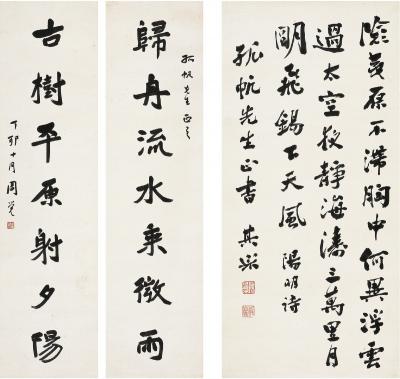 險夷原不滯胸中何異浮雲
過太空夜靜海濤三萬里月
明飛錫下天風 陽明詩
孤帆先生正書 其采
孤帆先生正之
歸舟流水乘微雨
古樹平原射夕陽
丁卯十月周覺